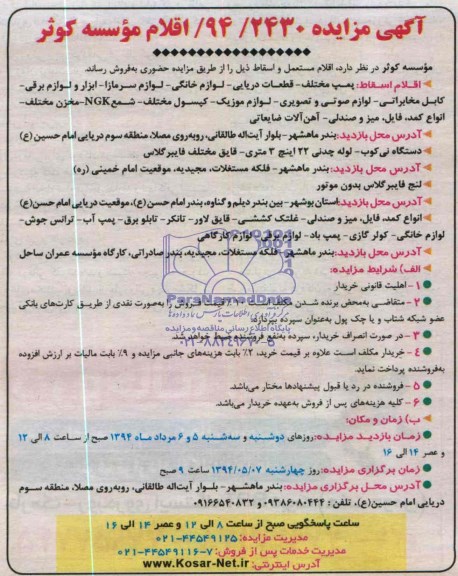 آگهی مزایده ۲۴۳۰/ ۹۴/ اقلام مؤسسه کوثر
مؤسسه کوثر در نظر دارد، اقلام مستعمل و اسقاط ذیل را از طریق مزایده حضوری به‌فروش رساند.
اقلام اسقاط: پمپ مختلف- قطعات دریایی- لوازم خانگی- لوازم سرمازا- ابزار و لوازم برقی-
کابل مخابراتی- لوازم صوتی و تصویری- لوازم موزیک- کپسول مختلف- شمع NGK- مخزن مختلف-
انواع کمد، فایل، میز و صندلی- آهن‌آلات ضایعاتی
آدرس محل بازدید: بندر ماهشهر- بلوار آیت‌اله طالقانی، روبه‌روی مصلا، منطقه سوم دریایی امام حسین (ع)
دستگاه نی‌کوب- لوله چدنی ۲۲ اینچ ۳ متری- قایق مختلف فایبرگلاس
آدرس محل بازدید: بندر ماهشهر- فلکه مستغلات، مجیدیه، موقعیت امام خمینی (ره)
لنج فایبرگلاس بدون موتور
آدرس محل بازدید: استان بوشهر- بین بندر دیلم و گناوه، بندر امام حسن (ع)، موقعیت دریایی امام حسن (ع)
انواع کمد، فایل، میز و صندلی- غلتک کششی- قایق لاور- تانکر- تابلو برق- پمپ آب- ترانس جوش-
لوازم خانگی- کولر گازی- پمپ باد- لوازم برقی- لوازم کارگاهی
آدرس محل بازدید: بندر ماهشهر- فلکه مستغلات، مجیدیه، بندر صادراتی، کارگاه مؤسسه عمران ساحل
الف) شرایط مزایده:
۱- اهلیت قانونی خریدار
۲- متقاضی به‌محض برنده شدن مکلف است فروش را به‌صورت نقدی از طریق کارت‌های بانکی
عضو شبکه شتاب و یا چک پول به‌عنوان سپرده بپردازد.
۳- در صورت انصراف خریدار، سپرده به‌نفع فروشنده ضبط خواهد شد.
۴- خریدار مکلف است علاوه بر قیمت خرید، ۲٪ بابت هزینه‌های جانبی مزایده و ۹٪ بابت مالیات بر ارزش افزوده
به‌فروشنده پرداخت نماید.
۵- فروشنده در رد یا قبول پیشنهادها مختار می‌باشد.
۶- کلیه هزینه‌های پس از فروش به‌عهده خریدار می‌باشد.
ب) زمان و مکان:
زمان بازدید مزایده: روزهای دوشنبه و سه‌شنبه ۵ و ۶ مرداد ماه ۱۳۹۴ صبح از ساعت ۸ الی ۱۲
و عصر ۱۴ الی ۱۶
زمان برگزاری مزایده: روز چهارشنبه ۱۳۹۴/۰۵/۰۷ ساعت ۹ صبح
آدرس محل برگزاری مزایده: بندر ماهشهر- بلوار آیت‌اله طالقانی، روبه‌روی مصلا، منطقه سوم
دریایی امام حسین (ع)، تلفن: ۰۹۳۸۶۰۸۰۴۴۴ و ۰۹۱۶۶۵۴۰۸۳۲
ساعت پاسخگویی صبح از ساعت ۸ الی ۱۲ و عصر ۱۴ الی ۱۶
مدیریت مزایده: ۰۲۱-۴۴۵۴۹۱۲۵
مدیریت خدمات پس از فروش: ۷-۰۲۱-۴۴۵۴۹۱۱۶
آدرس اینترنتی: www.Kosar-Net.ir
ParsNamadData
پایگاه اطلاع رسانی مناقصه و مزایده